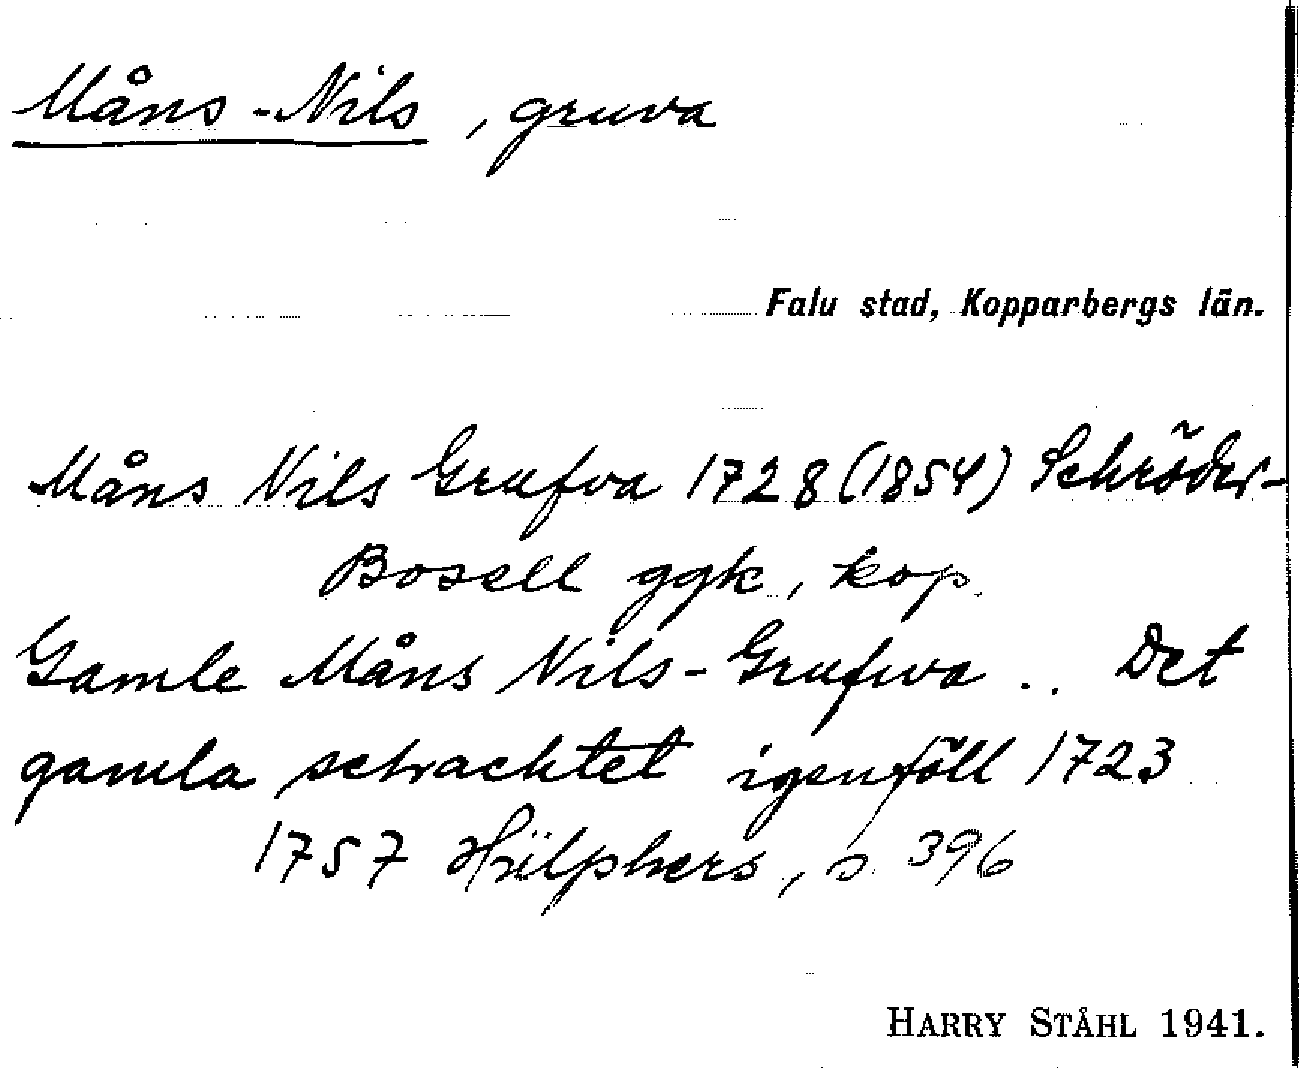 Måns-Nils, gruva
Falu stad, Kopparbergs län.
Måns Nils Grufva 1728 (1854) Schröder-
Bosell ggk, kop.
Gamle Måns Nils-Grufwa .. Det
gamla schacktet igenföll 1723
1757 Hülphers, s. 396
HARRY STÅHL 1941.